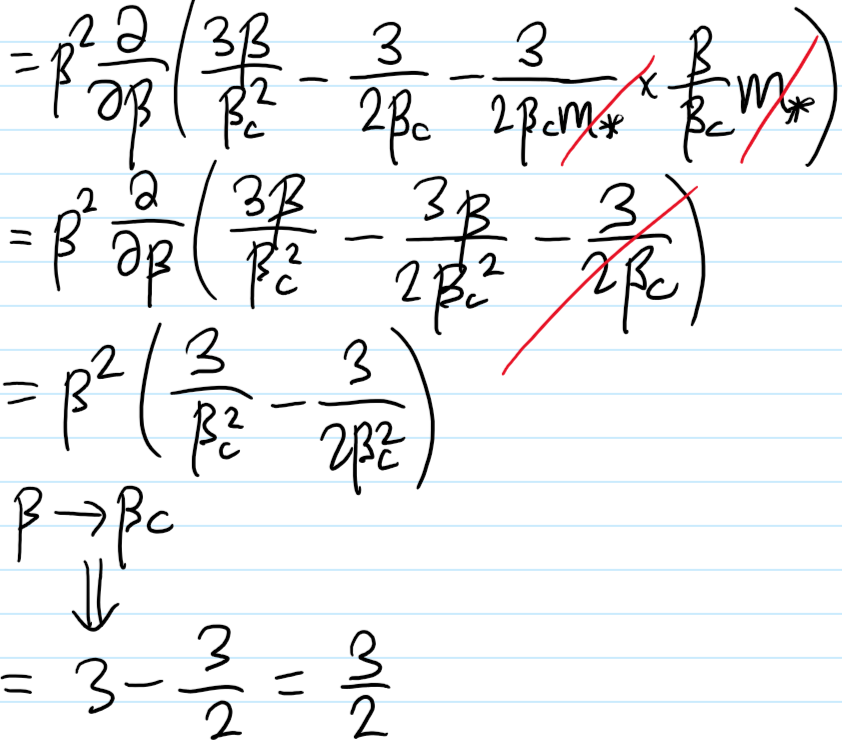 = β² ∂/∂β ( 3β/β_c² − 3/(2β_c) − 3/(2β_c m_*) × β/β_c m_* )
= β² ∂/∂β ( 3β/β_c² − 3β/(2β_c²) − 3/(2β_c) )
= β² ( 3/β_c² − 3/(2β_c²) )
β → β_c
⇓
= 3 − 3/2 = 3/2